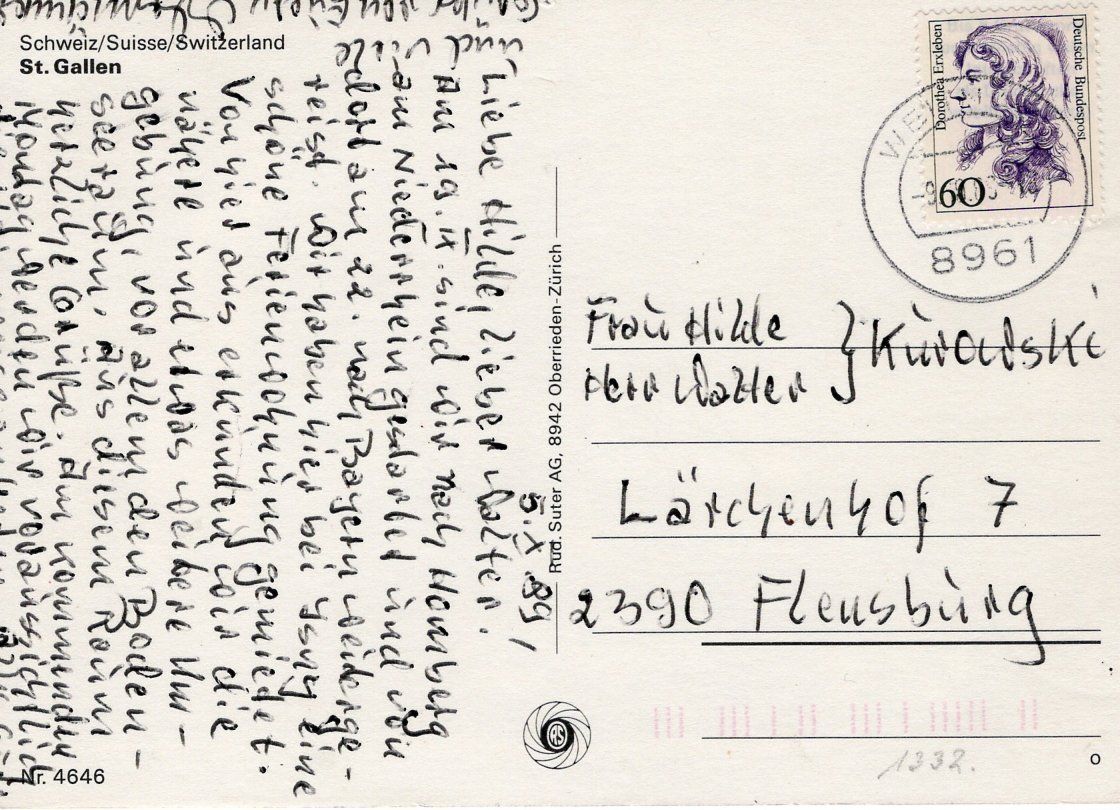 Schweiz/Suisse/Switzerland
St. Gallen
5.X.89
Liebe Hilde, lieber Walter!
Am 19.IX. sind wir nach Homberg
am Niederrhein gestartet und von
dort am 22. nach Bayern weiterge-
reist. Wir haben hier bei Isny eine
schöne Ferienwohnung gemietet.
Von hier aus erkunden wir die
nähere und etwas weitere Um-
gebung, vor allem den Boden-
seeraum. Aus diesem Raum
herzliche Grüße. Am kommenden
Montag werden wir voraussichtlich
und viele
Rud. Suter AG, 8942 Oberrieden-Zürich
Dorothea Erxleben
Deutsche Bundespost
60
8961
Frau Hilde
Herr Walter } Kurowski
Lärchenhof 7
2390 Flensburg
RS
1332.
Nr. 4646
o